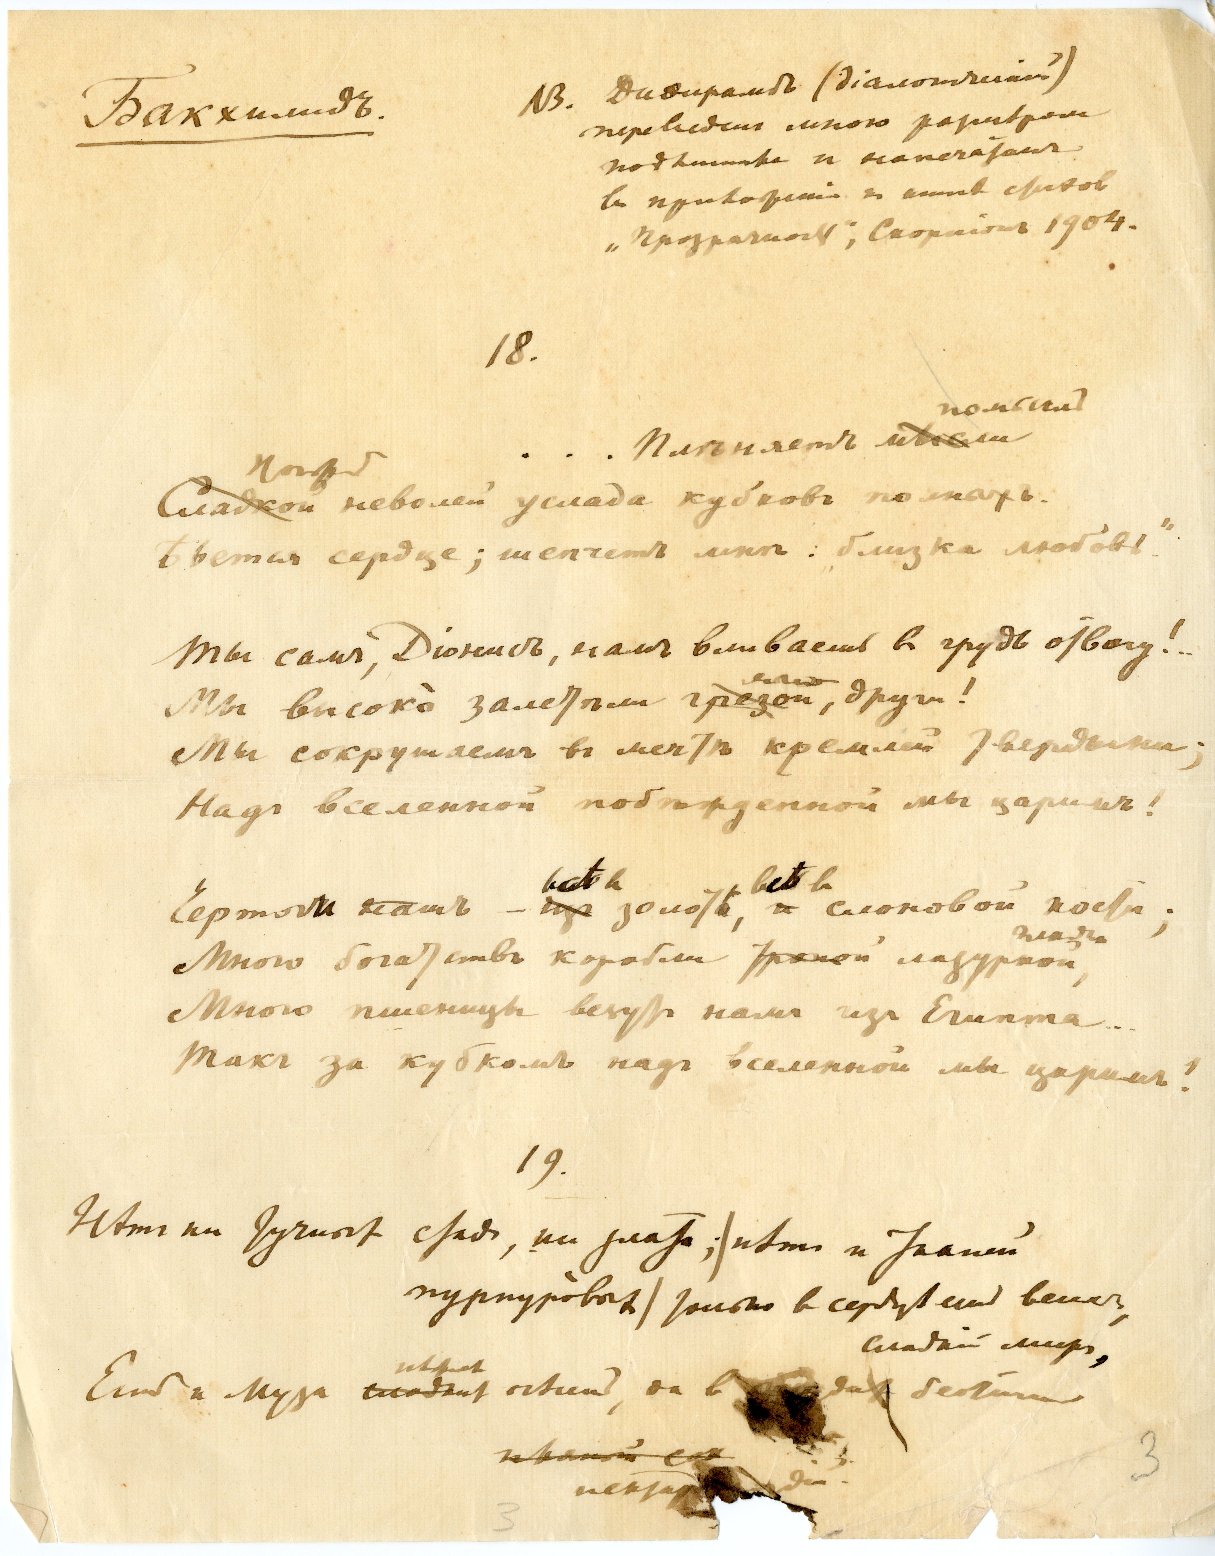 Бакхилидъ.
NB. Диѳирамбъ (діалогическій)
переведенъ мною размѣромъ
подлинника и напечатанъ
въ приложеніи къ книгѣ стиховъ
„Прозрачность", Скорпіонъ 1904.
18.
помыслъ
. . . Плѣняетъ мысли
Сладкой неволей услада кубковъ полныхъ.
сердце; шепчетъ мнѣ: „близка любовь!"
Ты самъ, Діонисъ, намъ вливаешь въ грудь отвагу!..
Мы высоко̀ залетѣли грезой, други!
Мы сокрушаемъ въ мечтѣ кремлей твердыни;
Надъ вселенной побѣжденной мы царимъ!
всѣ въ всѣ въ
Чертоги нашъ – изъ золотѣ, и слоновой кости;
гладью
Много богатствъ корабли тропой лазурной,
Много пшеницы везутъ намъ изъ Египта...
Такъ за кубкомъ надъ вселенной мы царимъ!
19.
Нѣтъ ни тучныхъ стадъ, ни злата; / нѣтъ и тканей
пурпуровыхъ / только въ сердцѣ
сладкій миръ,
Есть и Муза сладкихъ пѣсенъ, да въ
3
3